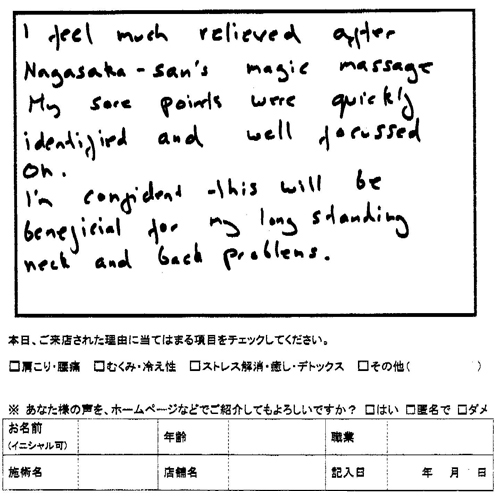 I feel much relieved after
Nagasaka-san's magic massage
My sore points were quickly
identified and well focussed
on.
I'm confident this will be
beneficial for my long standing
neck and back problems.
本日、ご来店された理由に当てはまる項目をチェックしてください。
□肩こり・腰痛 □むくみ・冷え性 □ストレス解消・癒し・デトックス □その他( )
※ あなた様の声を、ホームページなどでご紹介してもよろしいですか? □はい □匿名で □ダメ
お名前 年齢 職業
(イニシャル可)
施術名 店舗名 記入日 年 月 日